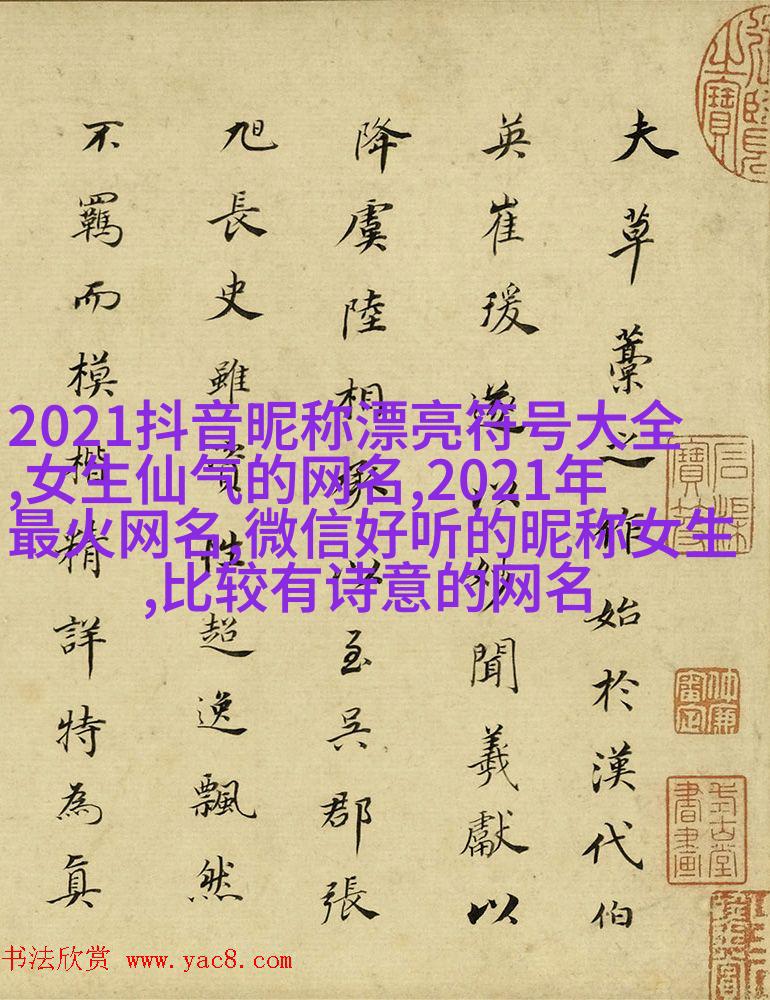 夫草藁之作始於漢代伯
英崔瑗以妙聞羲獻以
降虞陸相以至吳郡張
旭長史雖資性超逸飄然
不羈而模楷精詳特為真
2021抖音昵称漂亮符号大全
,女生仙气的网名,2021年
最火网名,微信好听的昵称女生
,比较有诗意的网名
书法欣赏 www.yac8.com